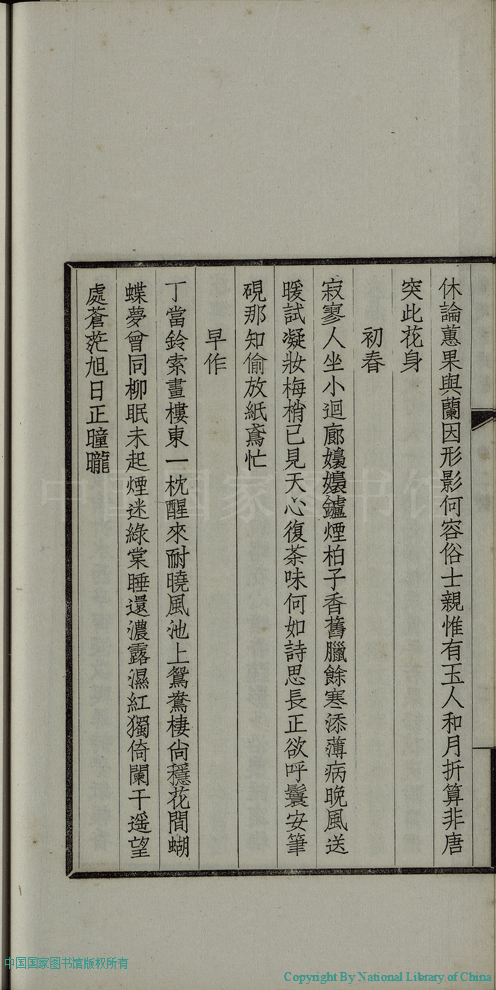 休論蕙果與蘭因形影何容俗士親惟有玉人和月折算非唐
突此花身
初春
寂寥人坐小迴廊嬝嬝鑪煙柏子香舊臘餘寒添薄病晚風送
暖試凝妝梅梢已見天心復茶味何如詩思長正欲呼鬟安筆
硯那知偷放紙鳶忙
早作
丁當鈴索畫樓東一枕醒來耐曉風池上鴛鴦棲尙穩花間蝴
蝶夢曾同柳眠未起煙迷綠棠睡還濃露濕紅獨倚闌干遥望
處蒼茫旭日正曈曨
中国国家图书馆
中国国家图书馆版权所有
Copyright By National Library of China